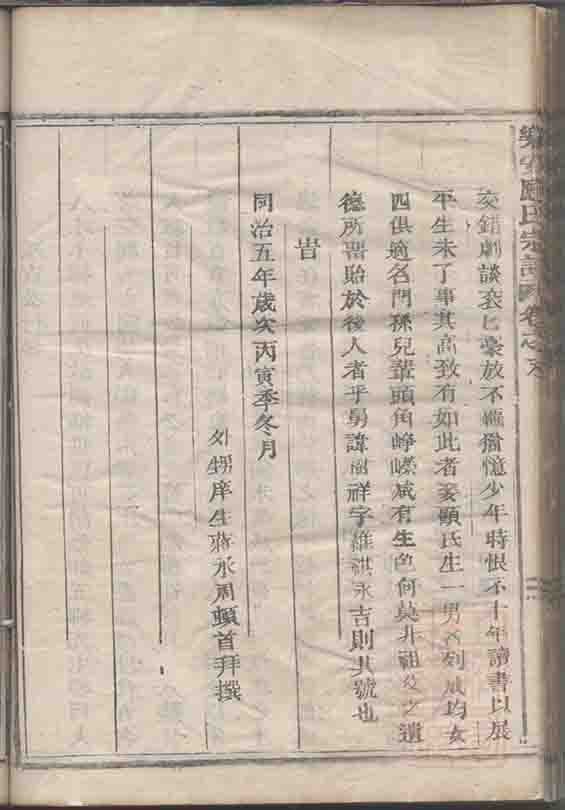 交錯劇談衮匕豪放不羈猶憶少年時恨不十年讀書以展
平生未了事其高致有如此者娶顧氏生一男名列成均女
四俱適名門孫兒輩頭角崢嶸咸有生色何莫非祖父之遺
德所畱貽於後人者乎舅諱國祥字維祺永吉則其號也
旹
同治五年歲次丙寅季冬月
外甥庠生蔣承周頓首拜撰
氏宗譜 卷之